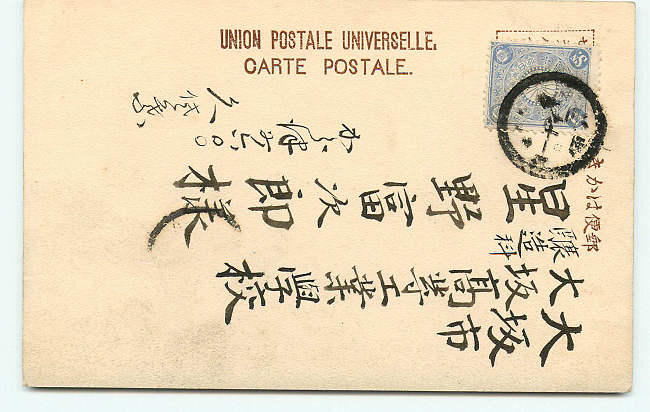 UNION POSTALE UNIVERSELLE.
CARTE POSTALE.
郵便はかき
大坂市
大坂高等工業學校
釀造科
星野富次郎様